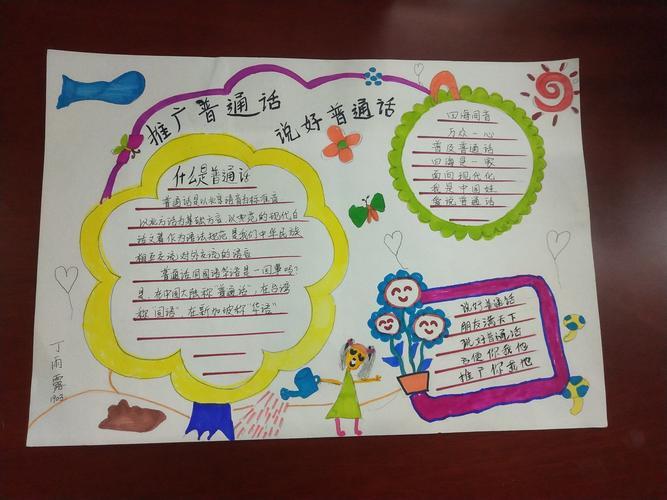 推广普通话
说好普通话
什么是普通话
普通话是以北京语音为标准音
以北方话为基础方言,以典范的现代白
话文著作为语法规范,是我们中华民族
相互交流对外交流的语言
普通话同国语华语是一回事吗?
是,在中国大陆称“普通话”,在台湾
称“国语”在新加坡称“华语”
四海同音
万众一心
普及普通话
四海是一家
面向现代化
我是中国娃
爱说普通话
说好普通话
朋友满天下
说好普通话
方便你我他
推广你我他
丁雨露
1903